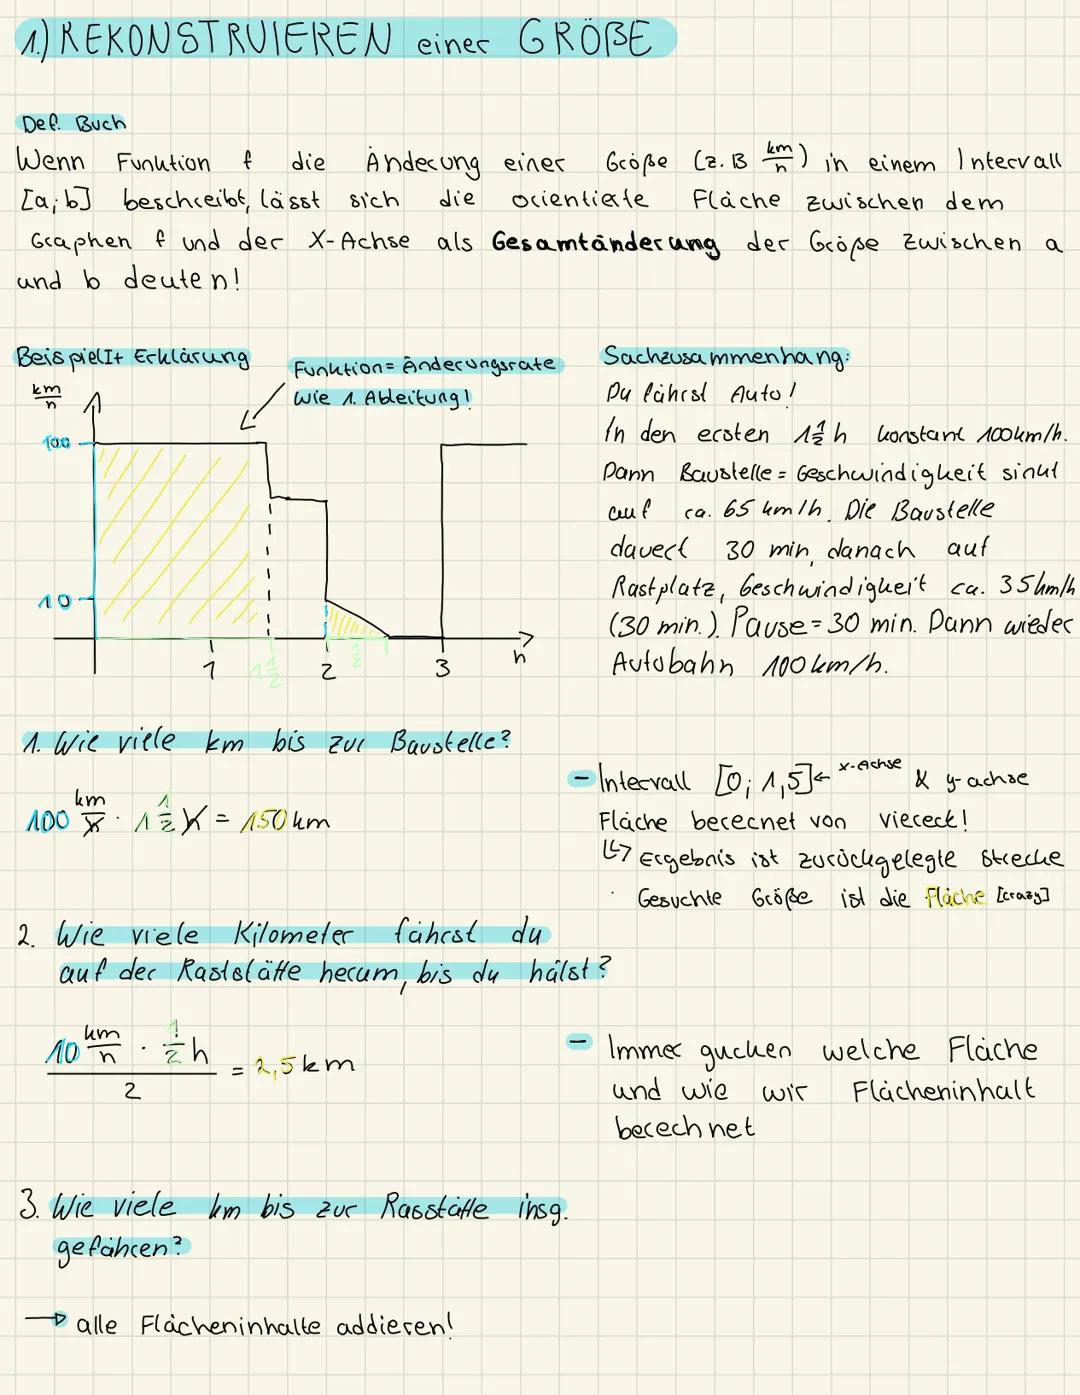 1.) REKONSTRUIEREN einer GRÖßE
Def. Buch
Wenn Funktion f die Änderung einer Größe (z.B km/h) in einem Intervall
[a;b] beschreibt, lässt sich die orientierte Fläche zwischen dem
Graphen f und der X-Achse als Gesamtänderung der Größe zwischen a
und b deuten!
Beispiel I+ Erklärung
Funktion = Änderungsrate
wie 1. Ableitung!
km/h
100
10
1
1 1/2
2
1/2
3
h
Sachzusammenhang:
Du fährst Auto!
In den ersten 1 1/2 h konstant 100km/h.
Dann Baustelle = Geschwindigkeit sinkt
auf ca. 65 km/h. Die Baustelle
dauert 30 min, danach auf
Rastplatz, Geschwindigkeit ca. 35km/h
(30 min.). Pause = 30 min. Dann wieder
Autobahn 100 km/h.
1. Wie viele km bis zur Baustelle?
100 km/h · 1 1/2 h = 150 km
- Intervall [0; 1,5] ← x-Achse & y-achse
Fläche berecnet von viereck!
↳ Ergebnis ist zurückgelegte Strecke
· Gesuchte Größe ist die Fläche [crazy]
2. Wie viele Kilometer fährst du
auf der Raststätte herum, bis du hälst?
10 km/h · 1/2 h / 2 = 2,5 km
- Immer gucken welche Fläche
und wie wir Flächeninhalt
berechnet
3. Wie viele km bis zur Rasstätte insg.
gefahren?
→ alle Flächeninhalte addieren!